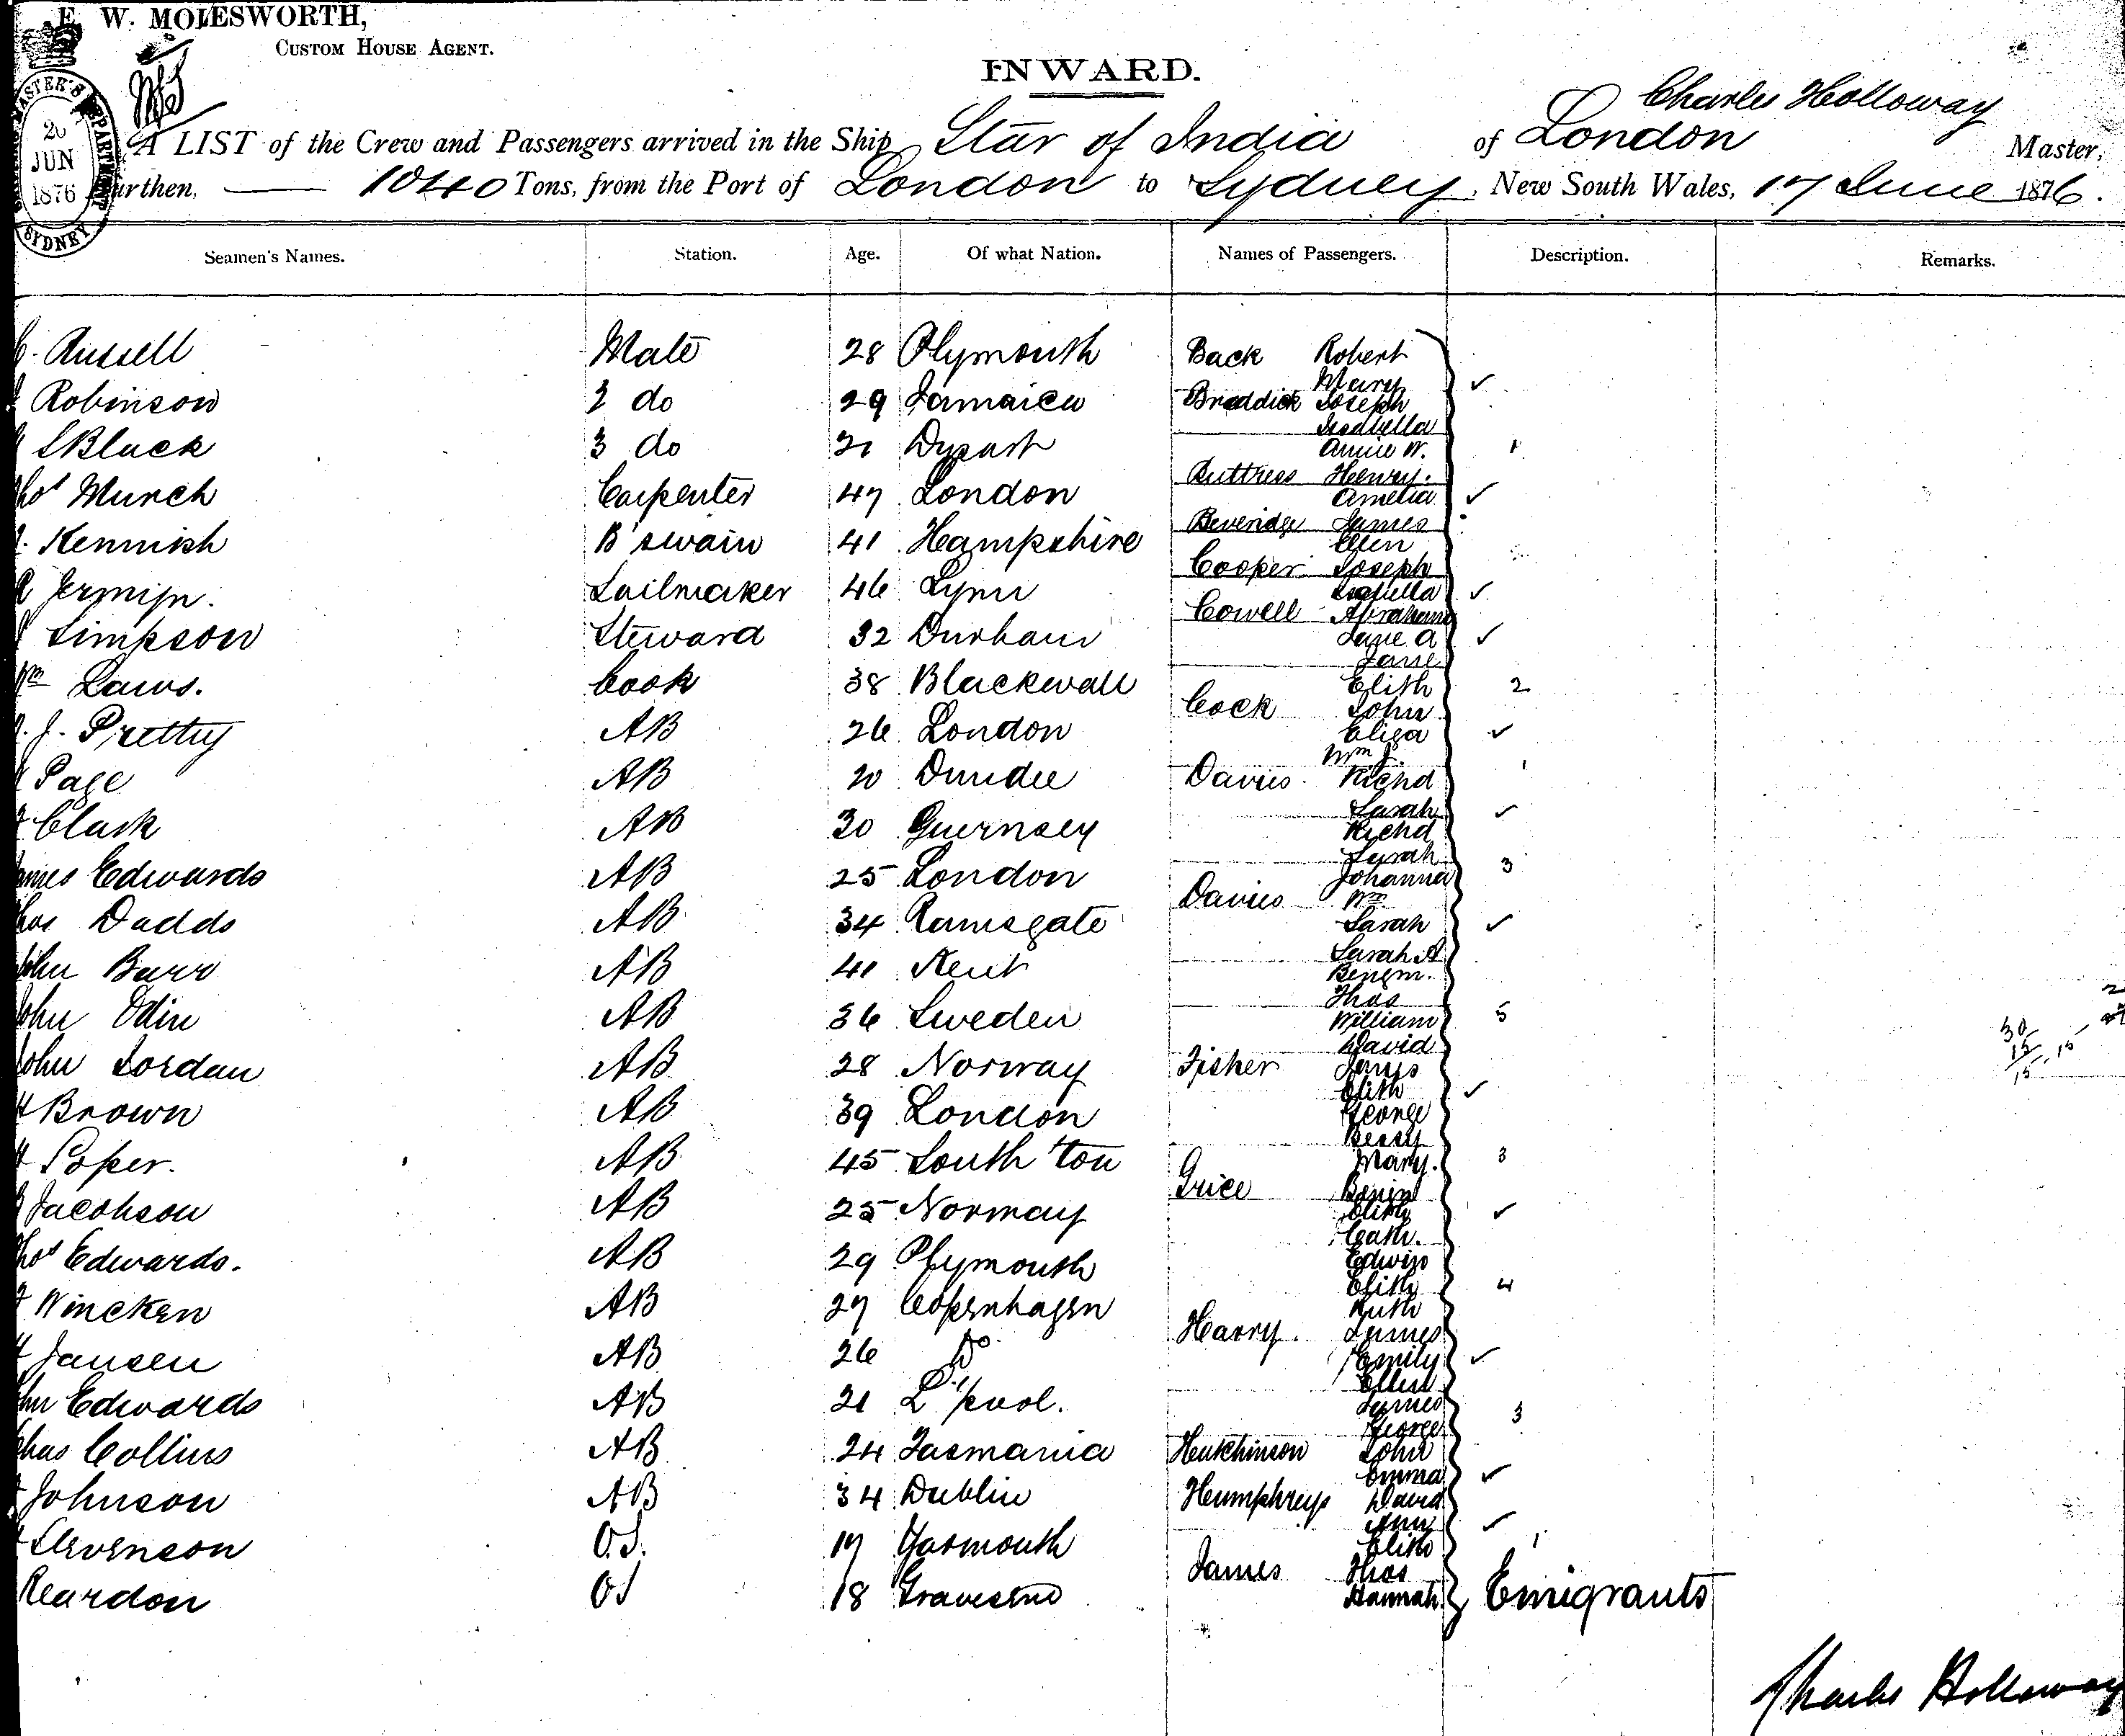 E. W. MOLESWORTH,
CUSTOM HOUSE AGENT.
INWARD.
Charles Holloway
A LIST of the Crew and Passengers arrived in the Ship Star of India of London Master,
urthen, — 1040 Tons, from the Port of London to Sydney, New South Wales, 17 June 1876.
20
JUN
1876
SYDNEY
Seamen's Names. Station. Age. Of what Nation. Names of Passengers. Description. Remarks.
Russell Mate 28 Plymouth Back Robert
Mary ✓
Robinson 2 do 29 Jamaica Braddick Joseph
Isabella
Black 3 do 21 Dysart Annie W. 1
Buttress Henry.
Munch Carpenter 47 London Amelia ✓
Beveridge James
Kennish B'swain 41 Hampshire Ellen
Cooper Joseph
Jermyn. Sailmaker 46 Lynn Isabella ✓
Cowell Abraham
Simpson Steward 32 Durham Jane A ✓
Jane
Laws. Cook 38 Blackwall Elith 2
Cock John
J. Pretty AB 26 London Eliza ✓
Wm J.
Page AB 20 Dundee Davies Richd 1
Sarah ✓
Clark AB 30 Guernsey Richd
Sarah
Edwards AB 25 London Johanna 3
Davies Wm
Dadds AB 34 Ramsgate Sarah ✓
Sarah A
Barr AB 41 Kent Benjm.
Thos
Odin AB 36 Sweden William 5
David
Jordan AB 28 Norway Fisher James
Elith ✓
Brown AB 39 London George
Bessy
Soper. AB 45 South'ton Mary. 3
Grice Benjm
Jacobson AB 25 Norway Elith ✓
Cath.
Edwards. AB 29 Plymouth Edwin
Elith 4
Wincken AB 27 Copenhagen Ruth
Harry. James
Jansen AB 26 Do Emily ✓
Ellen
Edwards AB 21 L'pool. James
George 3
Collins AB 24 Tasmania Hutchinson John
Emma ✓
Johnson AB 34 Dublin Humphreys David
Ann ✓
Stevenson O.S. 17 Yarmouth Elith 1
James Thos
Reardon OS 18 Gravesend Hannah Emigrants
Charles Holloway